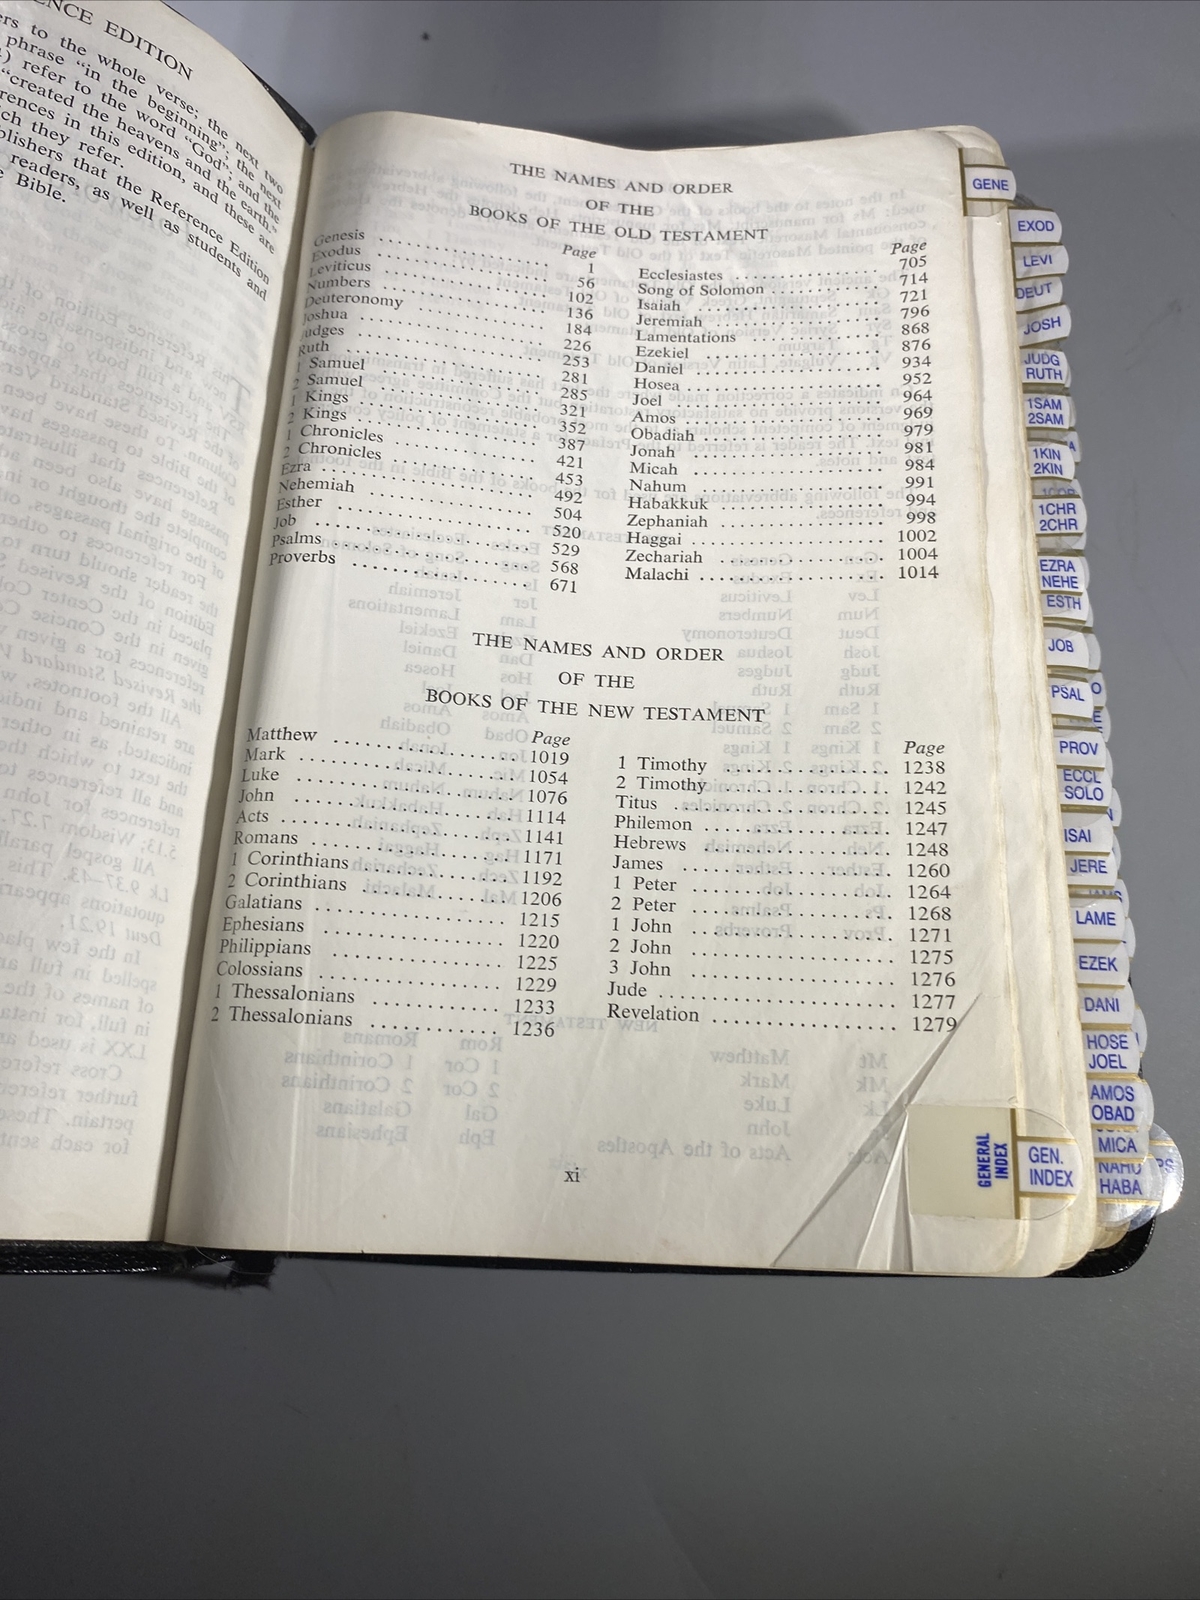 ENCE EDITION
ers to the whole verse; the next two
phrase "in the beginning"; the next
) refer to the word "God"; and the
"created the heavens and the earth."
rences in this edition, and these are
ich they refer.
blishers that the Reference Edition
readers, as well as students and
e Bible.
THE NAMES AND ORDER
OF THE
BOOKS OF THE OLD TESTAMENT
Page
Genesis 1
Exodus 56
Leviticus 102
Numbers 136
Deuteronomy 184
Joshua 226
Judges 253
Ruth 281
1 Samuel 285
2 Samuel 321
1 Kings 352
2 Kings 387
1 Chronicles 421
2 Chronicles 453
Ezra 492
Nehemiah 504
Esther 520
Job 529
Psalms 568
Proverbs 671
Page
Ecclesiastes 705
Song of Solomon 714
Isaiah 721
Jeremiah 796
Lamentations 868
Ezekiel 876
Daniel 934
Hosea 952
Joel 964
Amos 969
Obadiah 979
Jonah 981
Micah 984
Nahum 991
Habakkuk 994
Zephaniah 998
Haggai 1002
Zechariah 1004
Malachi 1014
THE NAMES AND ORDER
OF THE
BOOKS OF THE NEW TESTAMENT
Page
Matthew 1019
Mark 1054
Luke 1076
John 1114
Acts 1141
Romans 1171
1 Corinthians 1192
2 Corinthians 1206
Galatians 1215
Ephesians 1220
Philippians 1225
Colossians 1229
1 Thessalonians 1233
2 Thessalonians 1236
Page
1 Timothy 1238
2 Timothy 1242
Titus 1245
Philemon 1247
Hebrews 1248
James 1260
1 Peter 1264
2 Peter 1268
1 John 1271
2 John 1275
3 John 1276
Jude 1277
Revelation 1279
xi
GENERAL
INDEX
GEN.
INDEX
GENE
EXOD
LEVI
DEUT
JOSH
JUDG
RUTH
1SAM
2SAM
1KIN
2KIN
1CHR
2CHR
EZRA
NEHE
ESTH
JOB
PSAL
PROV
ECCL
SOLO
ISAI
JERE
LAME
EZEK
DANI
HOSE
JOEL
AMOS
OBAD
MICA
NAHU
HABA